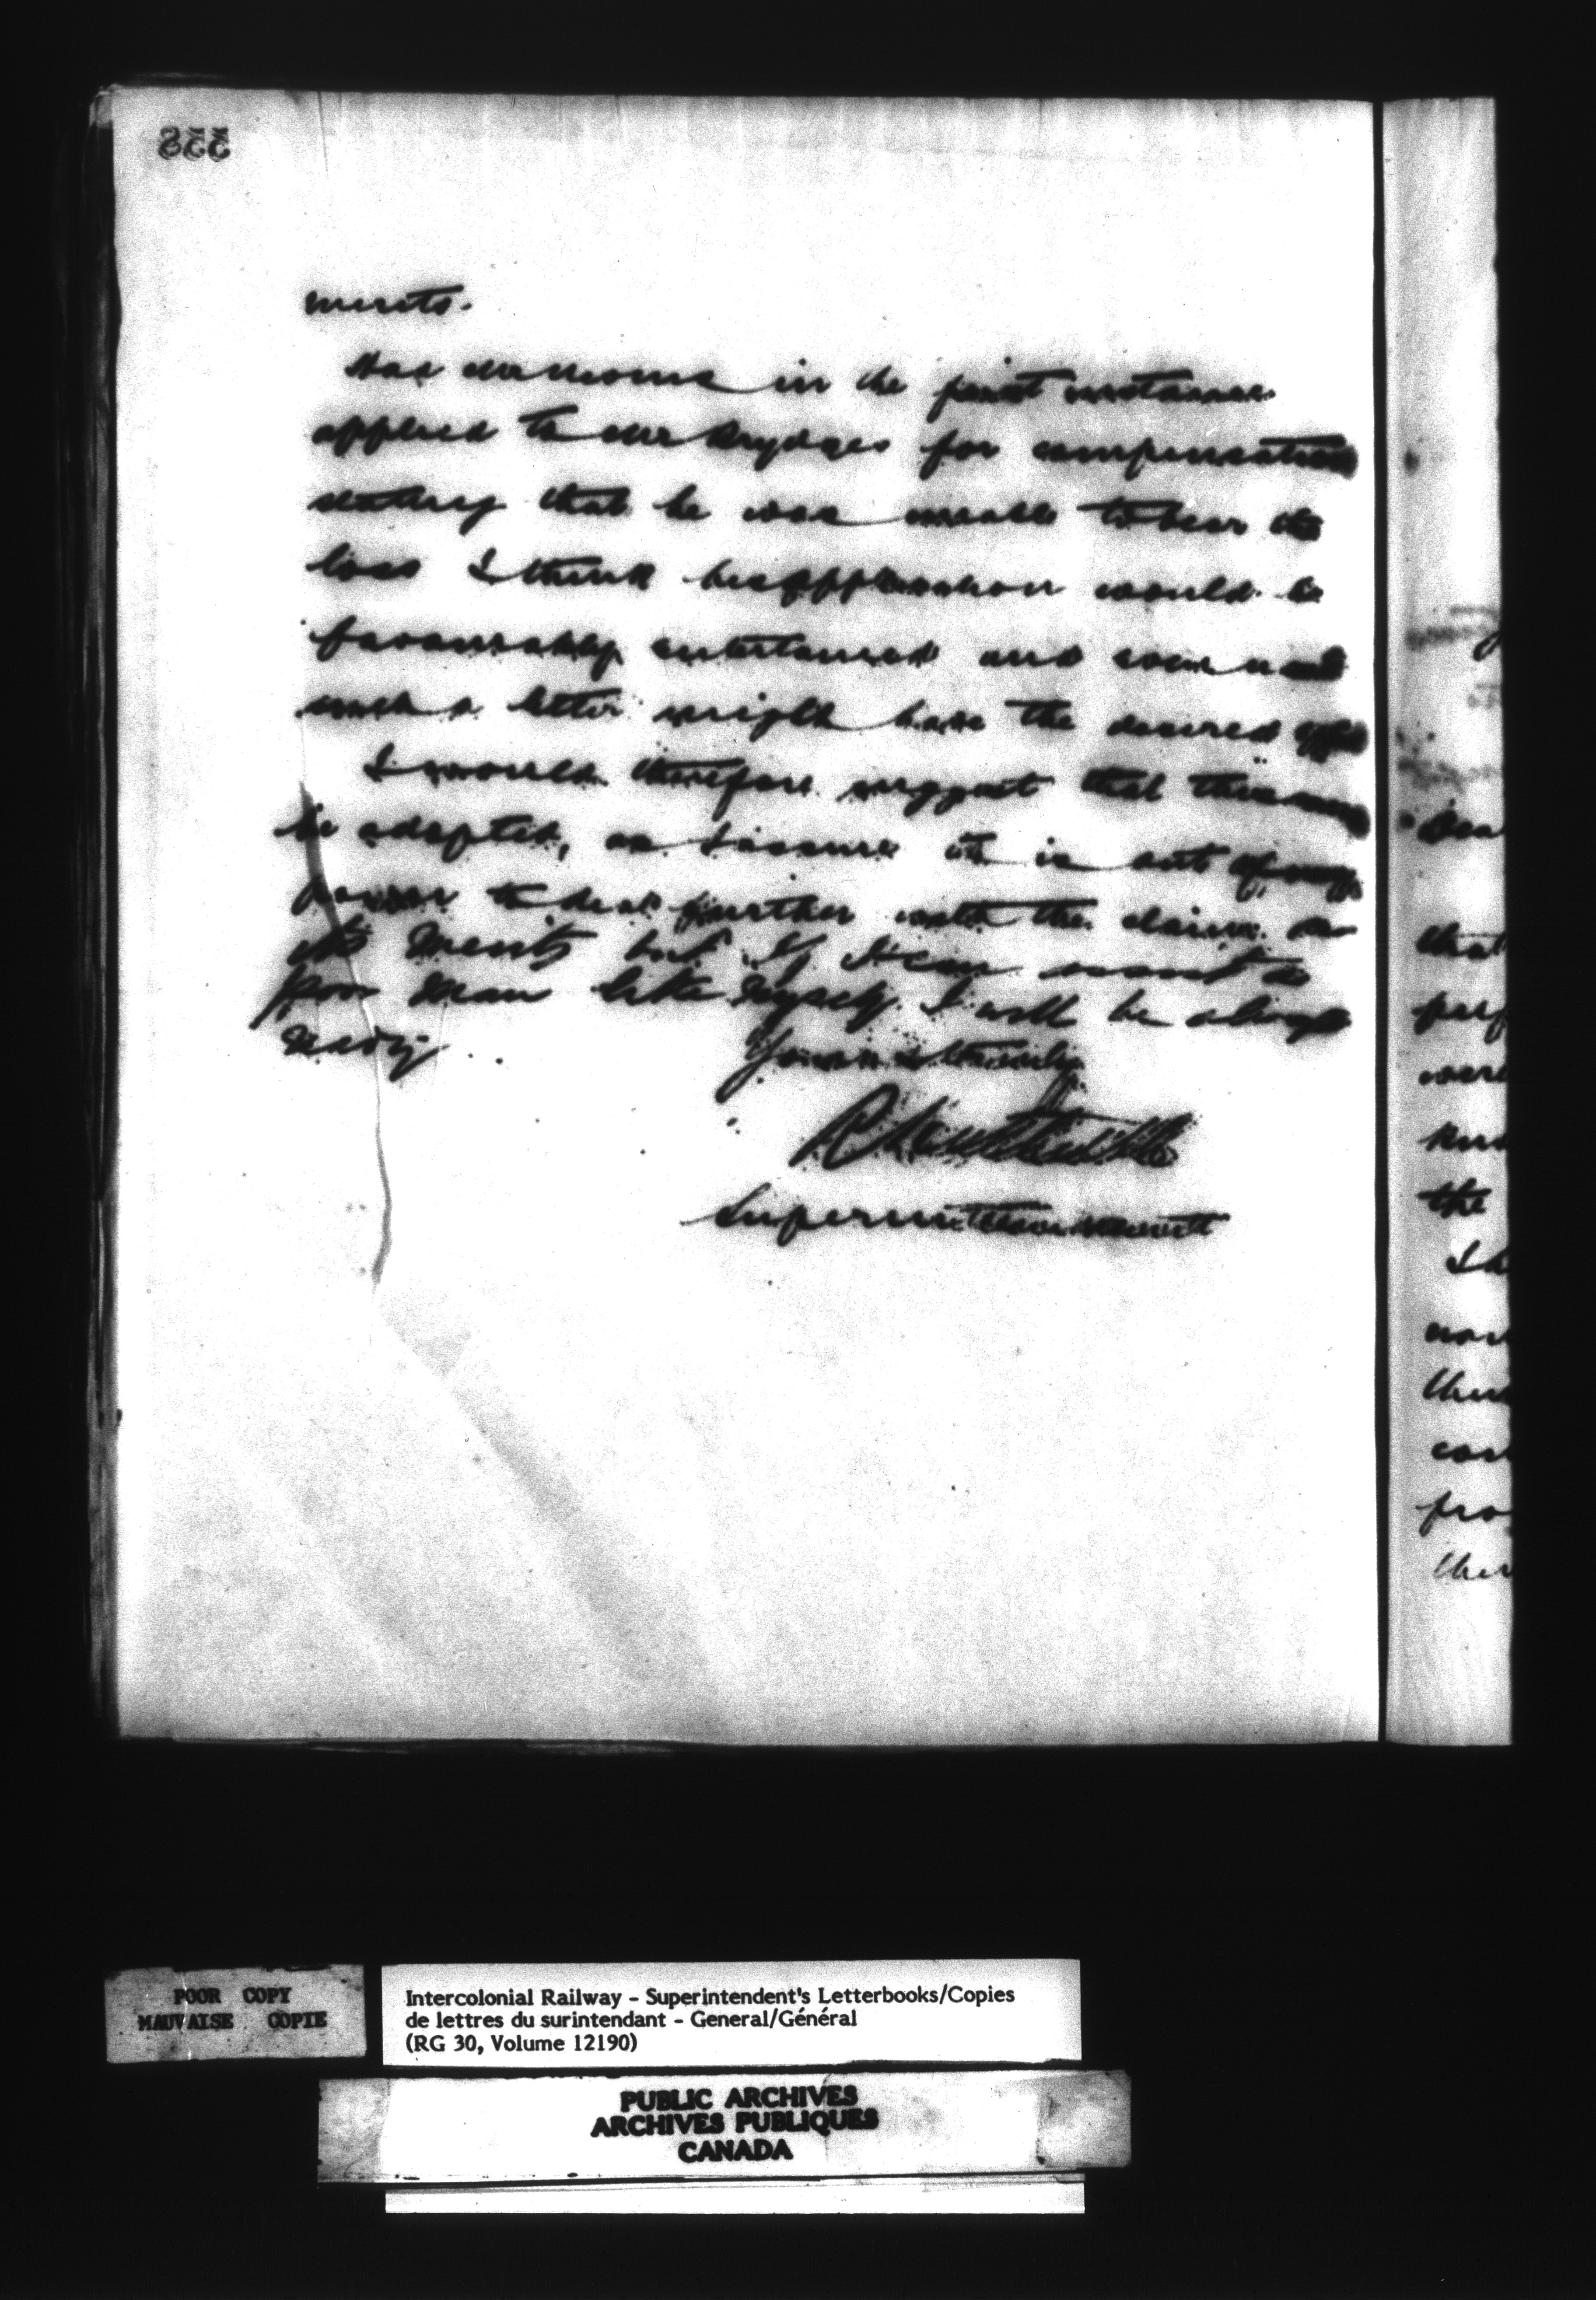 338
merits.
Had in the first instance
applied to Mr Brydges for compensation
stating that he was unable to bear the
loss I think his application would be
favourably entertained and even now
such a letter might have the desired
I would therefore suggest that this
be adopted, as I assure it is out of my
power to deal further with the claim on
its merits but if can assist a
poor man like myself I will be always
ready
Yours truly
Superintendent
Dea
that
perf
were
the
I h
then
can
pro
ther
POOR COPY
MAUVAISE COPIE
Intercolonial Railway - Superintendent's Letterbooks/Copies
de lettres du surintendant - General/Général
(RG 30, Volume 12190)
PUBLIC ARCHIVES
ARCHIVES PUBLIQUES
CANADA